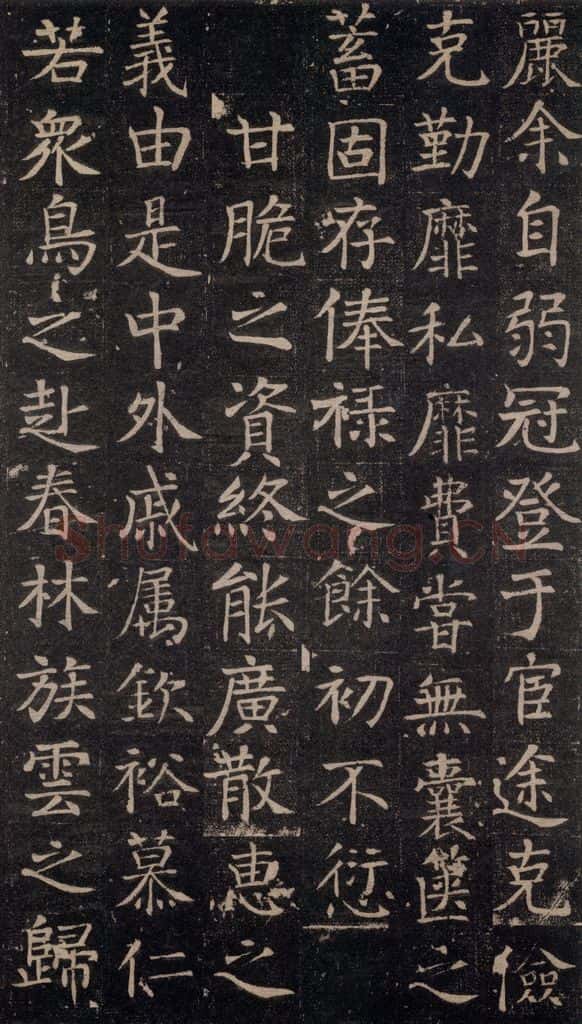 麗余自弱冠登于宦途克儉
克勤靡私靡費嘗無囊篋之
蓄固存俸祿之餘初不衍
甘脆之資終能廣散惠之
義由是中外戚属欽裕慕仁
若衆鳥之赴春林族雲之歸
Shufawang.CN